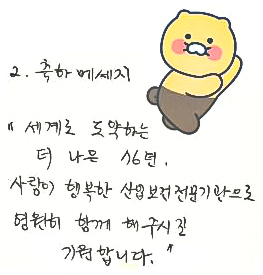 2. 축하 메세지
"세계로 도약하는
더 나은 16년.
사람이 행복한 산업보건전문기관으로
영원히 함께 해주시길
기원합니다."